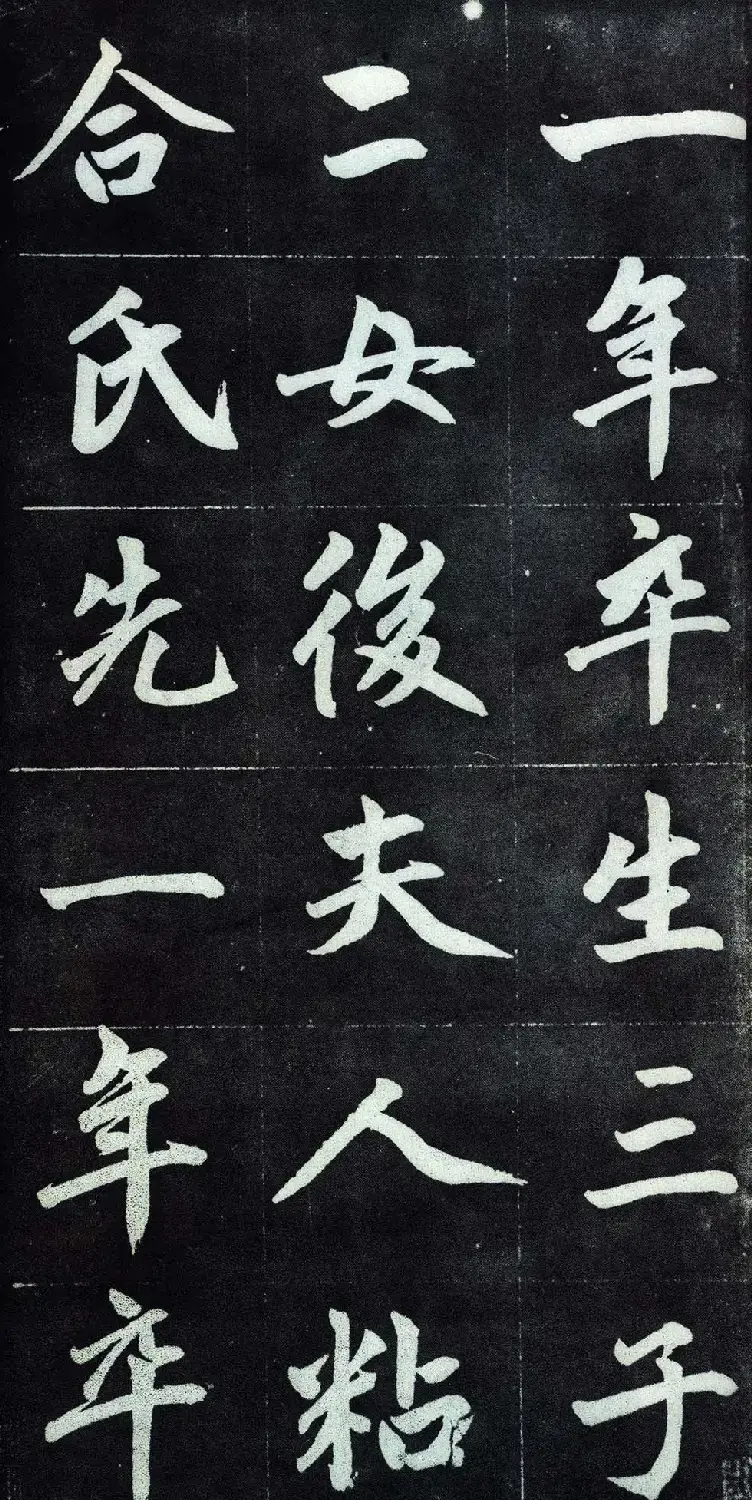 一年卒生三子
二女後夫人粘
合氏先一年卒